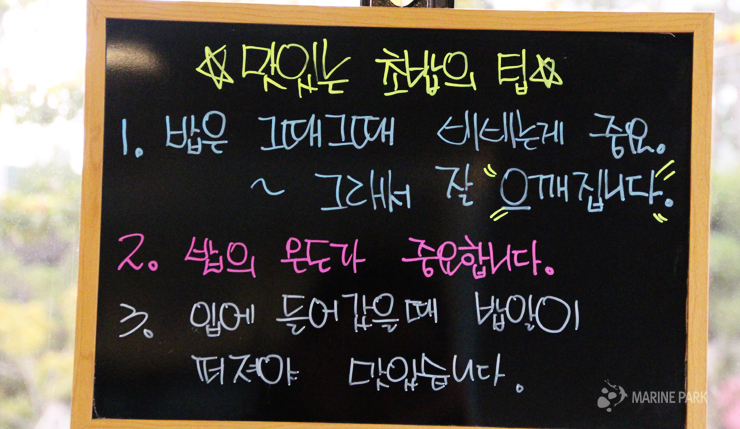 ☆맛있는 초밥의 팁☆
1. 밥은 그때그때 비비는게 중요.
~ 그래서 잘 "으깨집니다."
2. 밥의 온도가 중요합니다.
3. 입에 들어갔을때 밥알이
펴져야 맛있습니다.
MARINE PARK